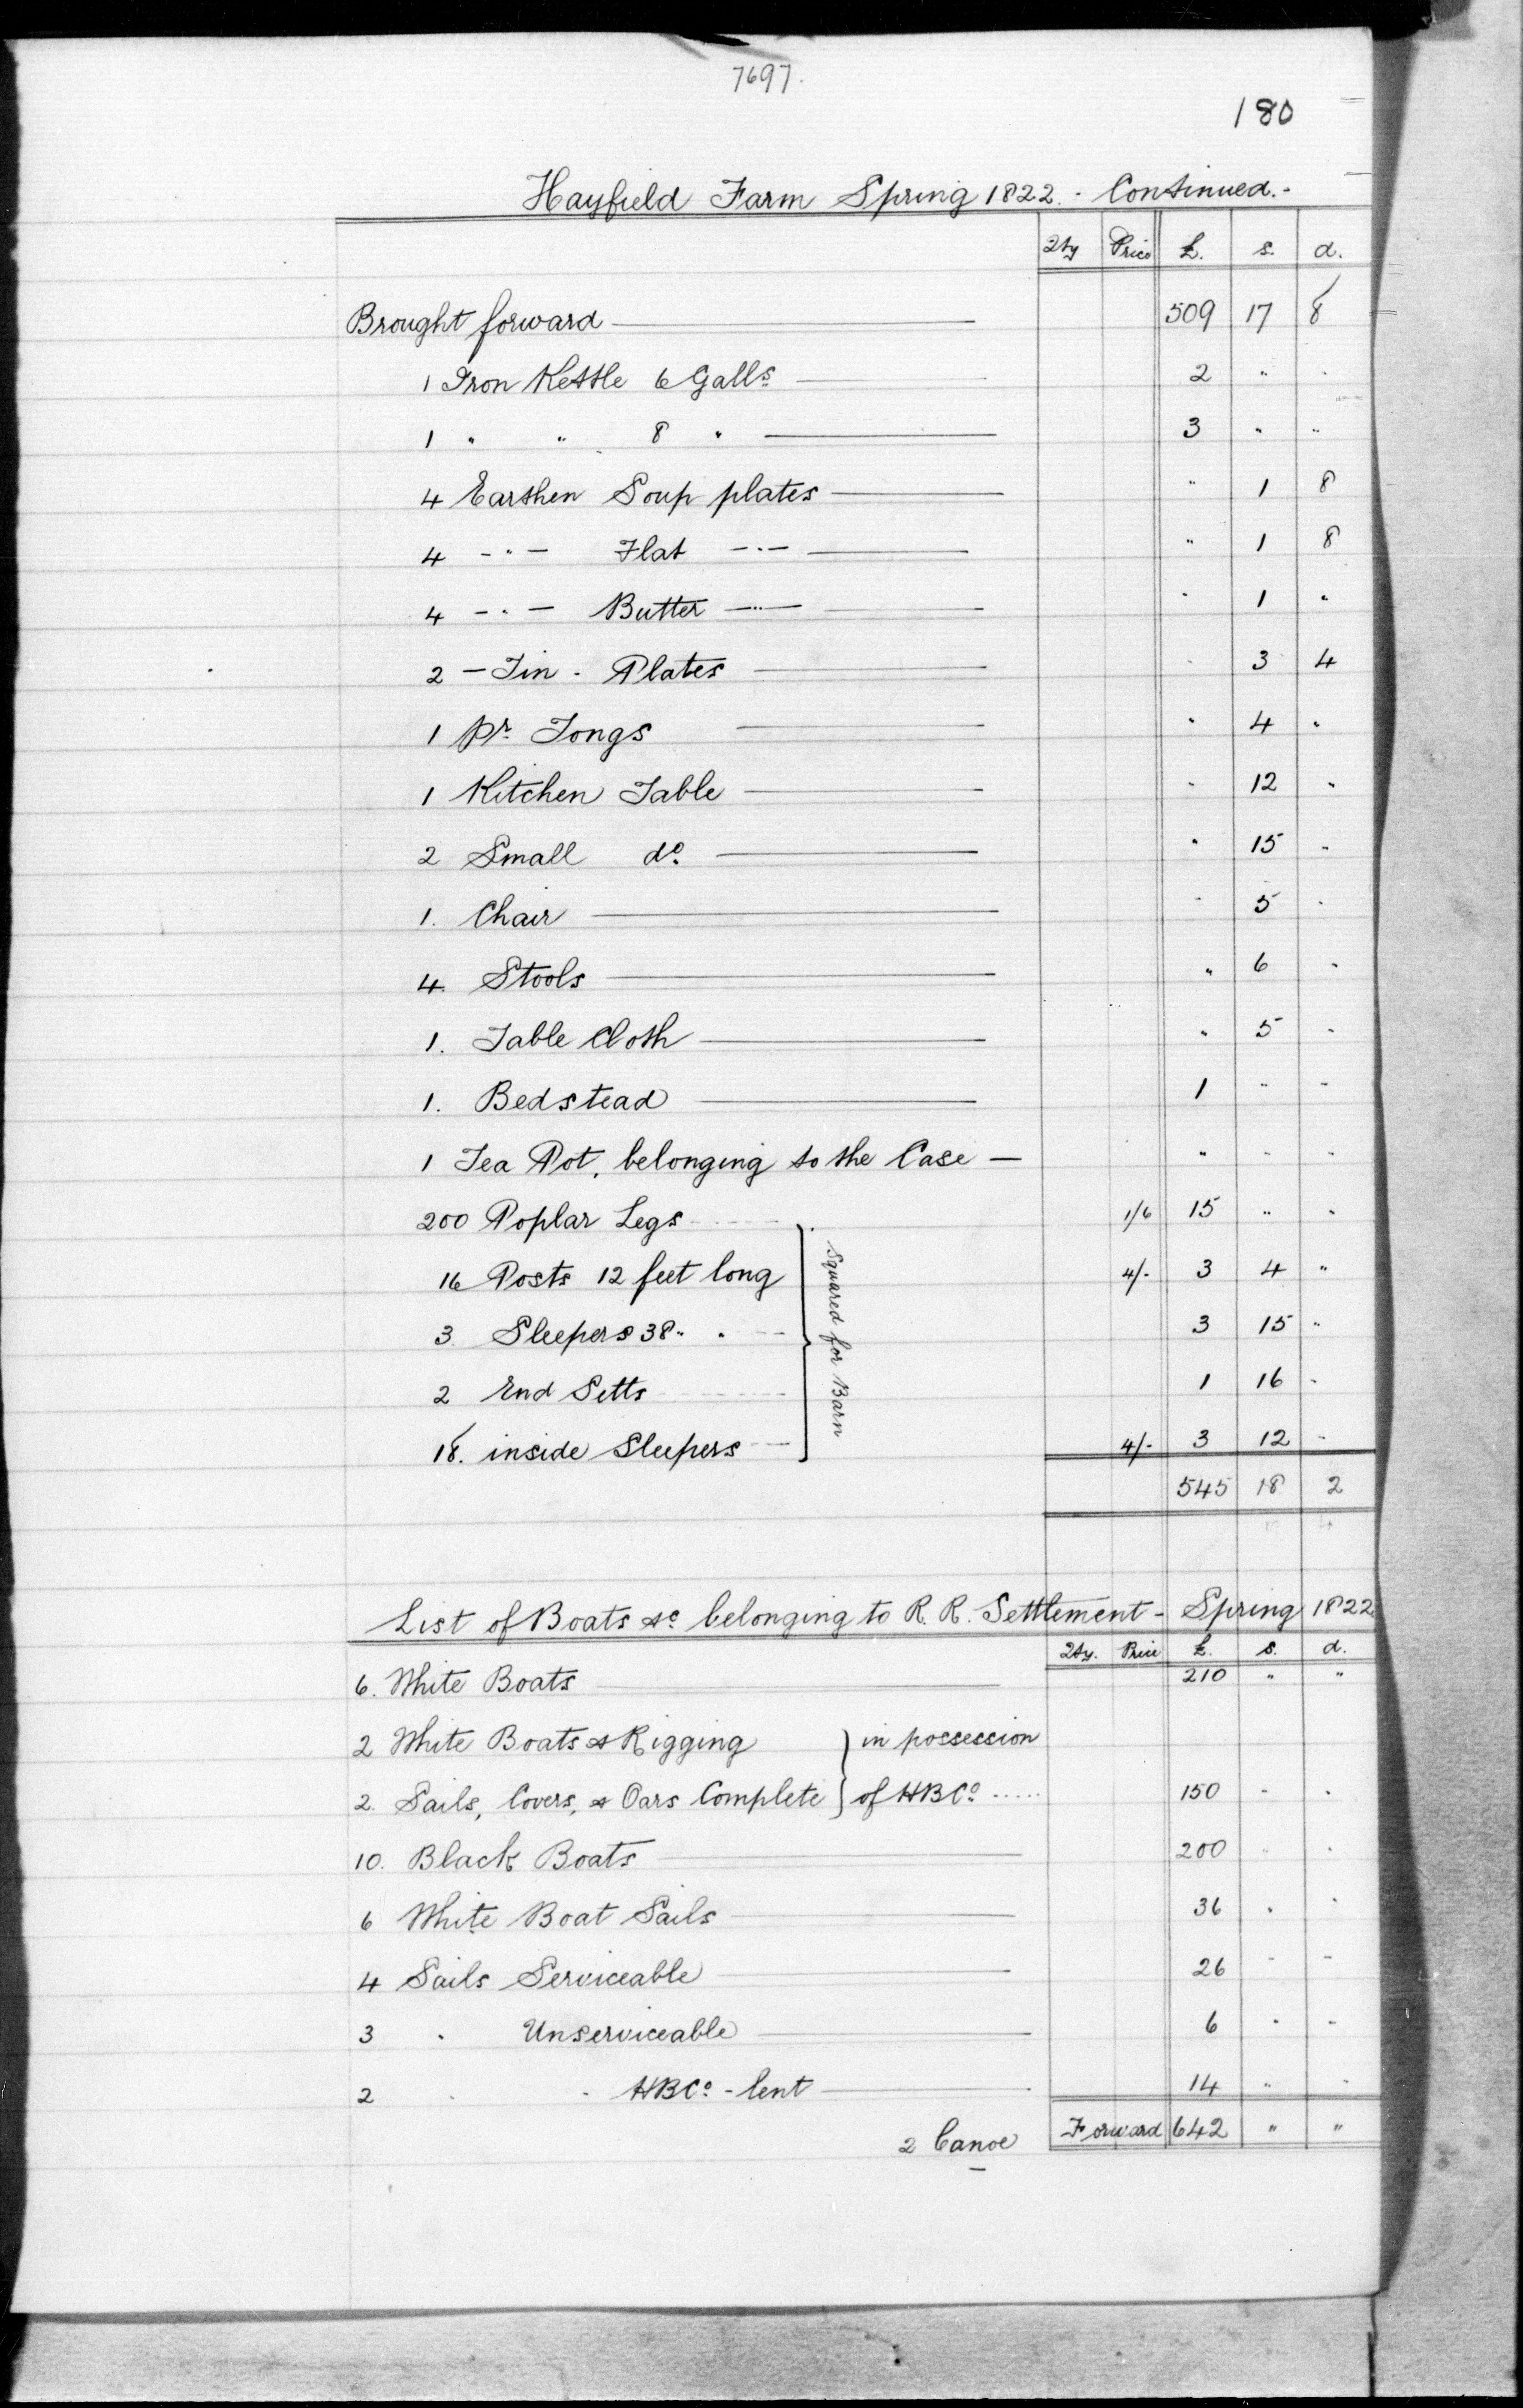 7697.
180
Hayfield Farm Spring 1822. - Continued.-
Qty Price £. s. d.
Brought forward 509 17 8
1 Iron Kettle 6 Galls 2 " "
1 " " 8 " 3 " "
4 Earthen Soup plates " 1 8
4 - " - Flat - " - " 1 8
4 - " - Butter - " - " 1 "
2 - Tin - Plates " 3 4
1 pr. Tongs " 4 "
1 Kitchen Table " 12 "
2 Small do. " 15 "
1. Chair " 5 "
4. Stools " 6 "
1. Table Cloth " 5 "
1. Bedstead 1 " "
1 Tea Pot, belonging to the Case — " " "
200 Poplar Legs 1/6 15 " "
16 Posts 12 feet long 4/- 3 4 "
3. Sleepers 38 " " 3 15 "
2 End Setts 1 16 "
18. inside Sleepers 4/- 3 12 "
Squared for Barn
545 18 2
List of Boats &c belonging to R. R. Settlement - Spring 1822
Qty. Price £. s. d.
6. White Boats 210 " "
2 White Boats & Rigging } in possession
2. Sails, Covers, & Oars Complete } of HBCo. 150 " "
10. Black Boats 200 " "
6 White Boat Sails 36 " "
4 Sails Serviceable 26 " "
3 " Unserviceable 6 " "
2 " " HBCo. - lent 14 " "
Forward 642 " "
2 Canoe